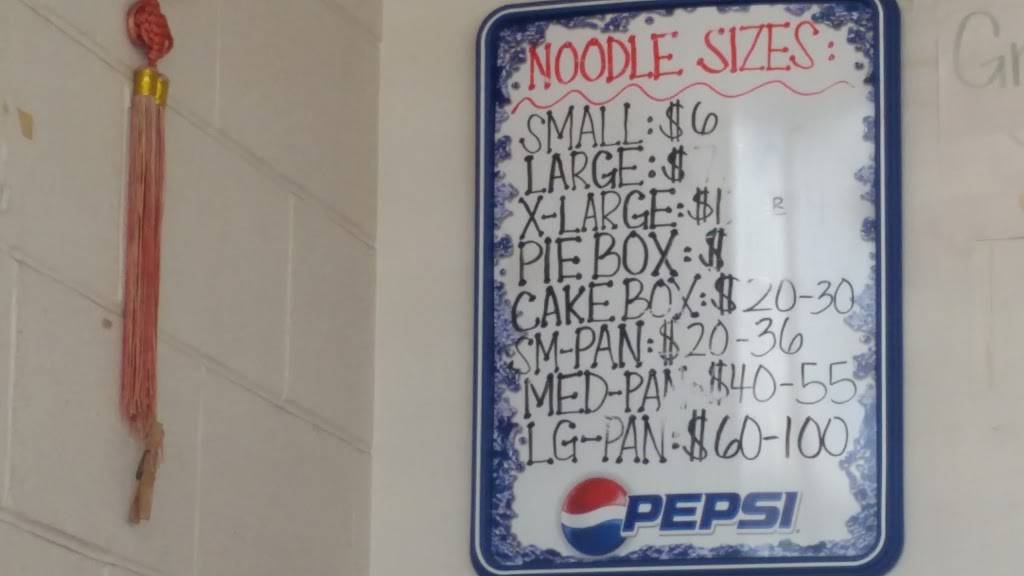 NOODLE SIZES:
SMALL: $6
LARGE: $
X-LARGE: $1
PIE BOX: $
CAKE BOX: $20-30
SM-PAN: $20-36
MED-PAN $40-55
LG-PAN: $60-100
PEPSI